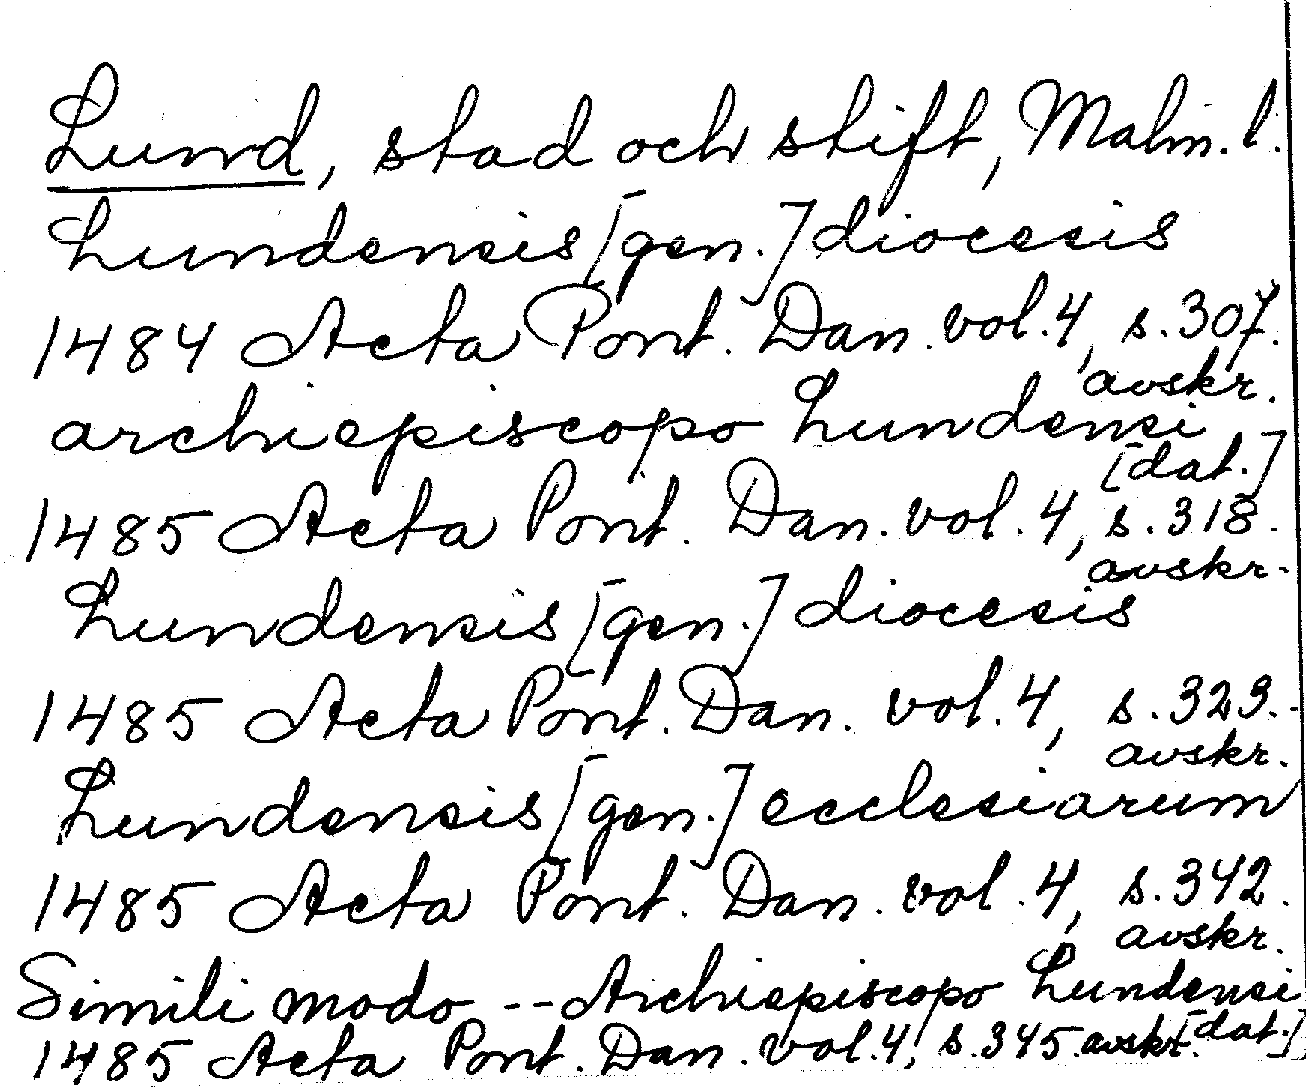 Lund, stad och stift, Malm. l.
Lundensis [gen.] diocesis
1484 Acta Pont. Dan. vol. 4, s. 307.
avskr.
archiepiscopo Lundensi
[dat.]
1485 Acta Pont. Dan. vol. 4, s. 318.
avskr.
Lundensis [gen.] diocesis
1485 Acta Pont. Dan. vol. 4, s. 323.
avskr.
Lundensis [gen.] ecclesiarum
1485 Acta Pont. Dan. vol. 4, s. 342.
avskr.
Simili modo -- Archiepiscopo Lundensi
[dat.]
1485 Acta Pont. Dan. vol. 4, s. 345. avskr.